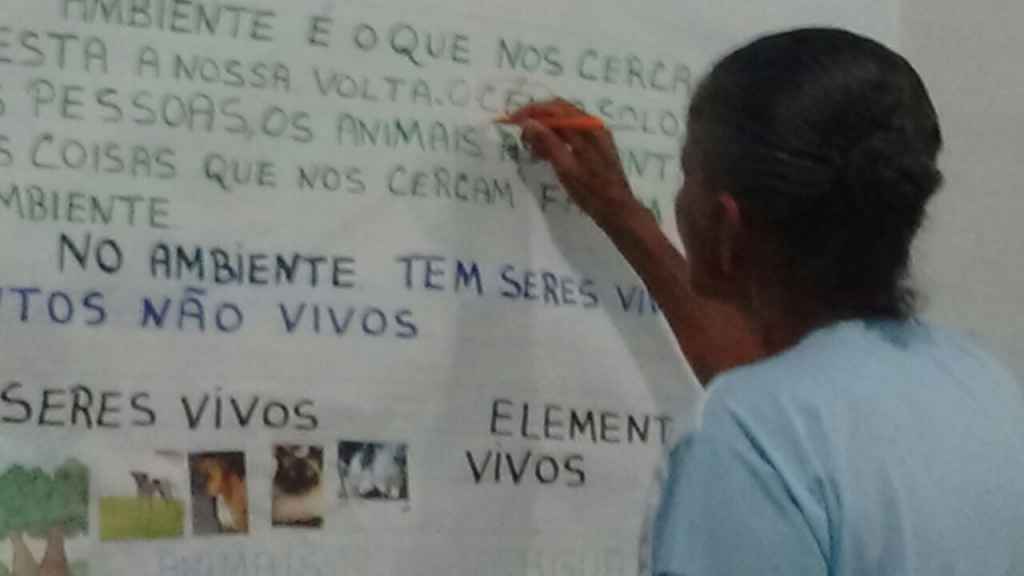 AMBIENTE É O QUE NOS CERCA
ESTA A NOSSA VOLTA. O SOLO
PESSOAS, OS ANIMAIS
COISAS QUE NOS CERCAM
MBIENTE
NO AMBIENTE TEM SERES VIV
TOS NÃO VIVOS
SERES VIVOS
ELEMENT
VIVOS
ANIMAIS
ÁGUA